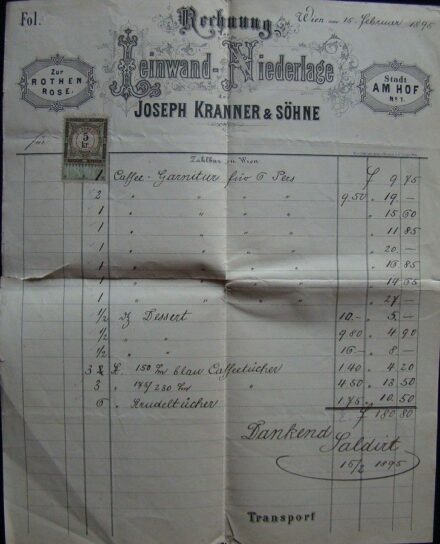 Fol.
Rechnung
Wien am 15. Februar 1895
Leinwand-Niederlage
Zur
ROTHEN
ROSE.
Stadt
AM HOF
No 1.
JOSEPH KRANNER & SÖHNE
für
5
kr
Zahlbar in Wien
1 Caffee-Garnitur für 6 Pers f 9 75
2 " " " " 9.50 " 19 —
1 " " " " " 15 60
1 " " " " " 11 85
1 " " " " " 20 —
1 " " " " " 16 85
1 " " " " " 14 65
1 " " " " " 27 —
1/2 Dz Dessert 10.— " 5 —
1/2 " " 9.80 " 4 90
1/2 " " 16 — " 8 —
3 150/m blau Caffeetücher 1.40 " 4.20
3 " 175/230/m " 4.50 " 13 50
6 " 1.75 " 10.50
f 180.80
Dankend
Saldirt
15/2 1895
Transport